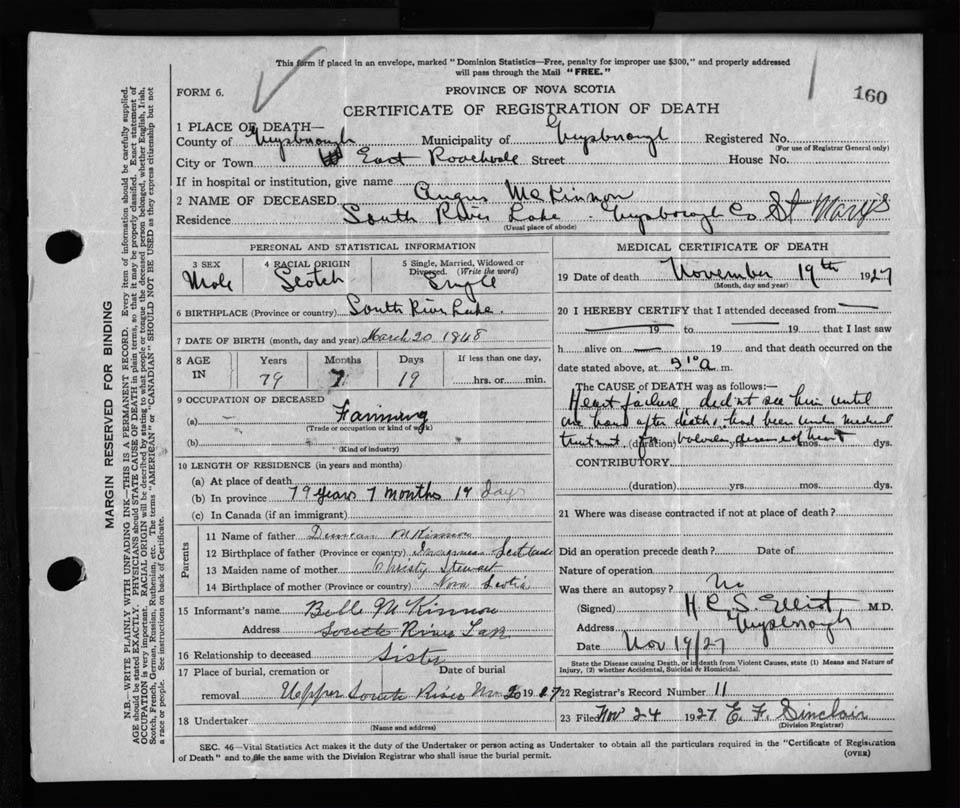 This form if placed in an envelope, marked "Dominion Statistics—Free, penalty for improper use $300," and properly addressed
will pass through the Mail "FREE."
FORM 6.
PROVINCE OF NOVA SCOTIA
160
CERTIFICATE OF REGISTRATION OF DEATH
1 PLACE OF DEATH—
County of Guysborough Municipality of Guysborough Registered No.
(For use of Registrar General only)
City or Town East Roachvale Street House No.
If in hospital or institution, give name
2 NAME OF DECEASED Angus McKinnon
Residence South River Lake Guysborough Co St Mary's
(Usual place of abode)
PERSONAL AND STATISTICAL INFORMATION
3 SEX 4 RACIAL ORIGIN 5 Single, Married, Widowed or Divorced. (Write the word)
Male Scotch Single
6 BIRTHPLACE (Province or country) South River Lake
7 DATE OF BIRTH (month, day and year) March 20 1848
8 AGE IN Years Months Days If less than one day,
79 7 19 hrs. or min.
9 OCCUPATION OF DECEASED
(a) Farming
(Trade or occupation or kind of work)
(b)
(Kind of industry)
10 LENGTH OF RESIDENCE (in years and months)
(a) At place of death
(b) In province 79 years 7 months 19 days
(c) In Canada (if an immigrant)
Parents
11 Name of father Duncan McKinnon
12 Birthplace of father (Province or country) Scotland
13 Maiden name of mother Christy Stewart
14 Birthplace of mother (Province or country) Nova Scotia
15 Informant's name Belle McKinnon
Address South River Lake
16 Relationship to deceased Sister
17 Place of burial, cremation or removal Date of burial
Upper South River Nov 20 1927
18 Undertaker
(Name and address)
MEDICAL CERTIFICATE OF DEATH
19 Date of death November 19th 1927
(Month, day and year)
20 I HEREBY CERTIFY that I attended deceased from
19 to 19 that I last saw
h alive on 19 and that death occurred on
date stated above, at m.
The CAUSE OF DEATH was as follows:—
Heart failure didn't see him until
one hour after death, had been under medical
treatment for valvular disease of heart (duration) yrs. mos. dys.
CONTRIBUTORY
(duration) yrs. mos. dys.
21 Where was disease contracted if not at place of death?
Did an operation precede death? Date of
Nature of operation
Was there an autopsy? No
(Signed) H C S Elliot, M.D.
Address Guysborough
Date Nov 19/27
State the Disease causing Death, or in death from Violent Causes, state (1) Means and Nature of
Injury, (2) whether Accidental, Suicidal or Homicidal.
22 Registrar's Record Number 11
23 Filed Nov 24 1927 E. F. Sinclair
(Division Registrar)
SEC. 46—Vital Statistics Act makes it the duty of the Undertaker or person acting as Undertaker to obtain all the particulars required in the "Certificate of Registration
of Death" and to file the same with the Division Registrar who shall issue the burial permit.
(OVER)
MARGIN RESERVED FOR BINDING
N.B.—WRITE PLAINLY WITH UNFADING INK—THIS IS A PERMANENT RECORD. Every item of information should be carefully supplied.
AGE should be stated EXACTLY. PHYSICIANS should STATE CAUSE OF DEATH in plain terms, so that it may be properly classified. Exact statement of
OCCUPATION is very important. RACIAL ORIGIN will be described by stating to what people or tongue the deceased person belonged, whether English, Irish,
Scotch, French, German, Russian, Ruthenian, etc. The terms "AMERICAN" or "CANADIAN" SHOULD NOT BE USED as they express citizenship but not
a race or people. See instructions on back of Certificate.